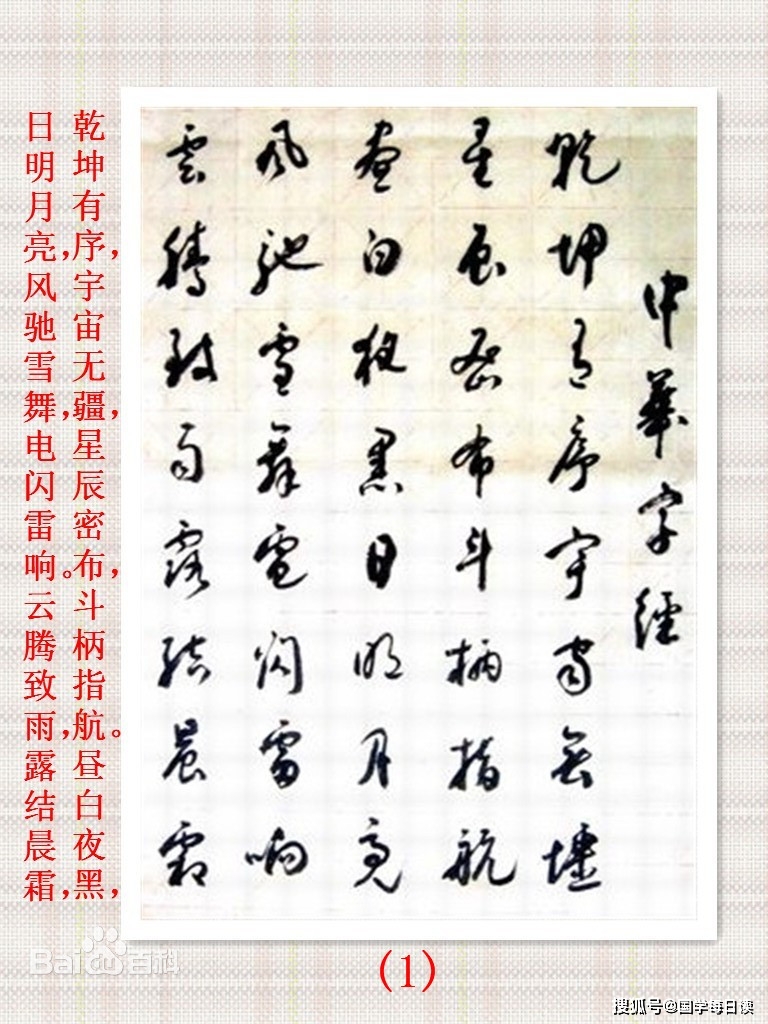 中華字經
乾坤有序宇宙無疆
星辰密布斗柄指航
晝白夜黑日明月亮
風馳雪舞電閃雷响
雲騰致雨露結晨霜
乾坤有序，宇宙无疆，星辰密布，斗柄指航。昼白夜黑，
日明月亮，风驰雪舞，电闪雷响。云腾致雨，露结晨霜，
(1)
Baidu百科
搜狐号@国学每日读